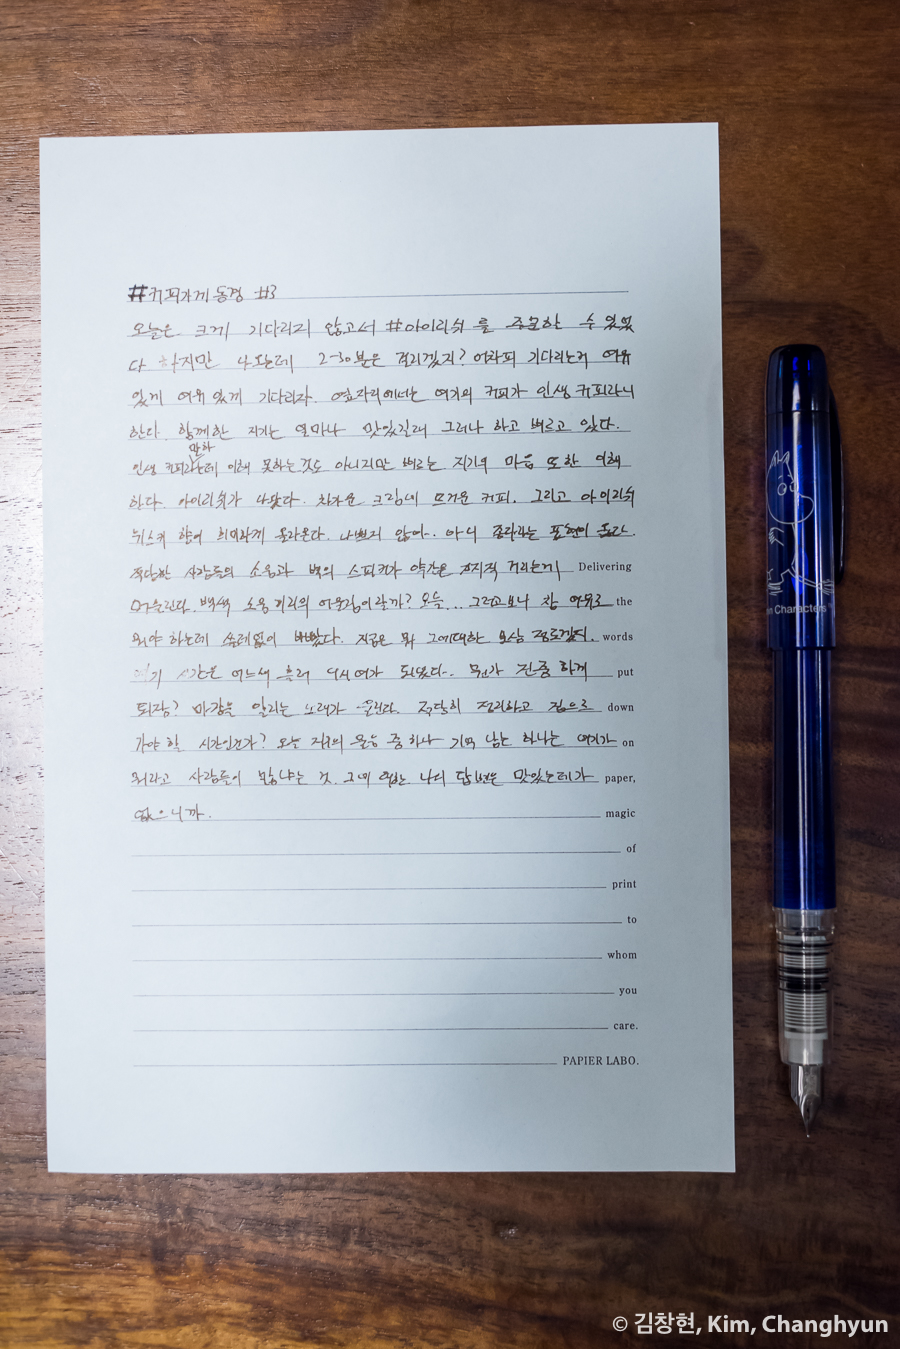 #커피가게 동경 #3
오늘은 크게 기다리지 않고서 #아이리쉬를 주문할 수 있었
다 하지만 나왔는데 2~30분은 걸리겠지? 어차피 기다리는거 여유
있게 여유 있게 기다리자. 옆자리에서는 여기의 커피가 인생 커피라니
한다. 함께한 지기는 얼마나 맛있길래 그러나 하고 벼르고 있다.
인생 커피라 말하는데 이해 못하는 것도 아니지만 벼르는 지기의 마음 또한 이해
하다. 아이리쉬가 나왔다. 차가운 크림에 뜨거운 커피. 그리고 아이리쉬
위스키 향이 희미하게 올라온다. 나쁘지 않아. 아니 좋다라는 표현이 옳다.
적당한 사람들의 소음과 벽의 스피커가 약간은 지직 거리는게 Delivering
어울린다. 백색 소음끼리의 어울림이랄까? 오늘... 그러고보니 참 the
뭐야 하는데 쓸데없이 바빴다. 지금은 뭐 그에대한 보상 정도겠지. words
시간은 어느새 흘러 9시 여가 되었다. 뭔가 진중하게 put
퇴장? 마감을 알리는 노래가 들린다. 적당히 정리하고 집으로 down
가야 할 시간인건가? 오늘 저희의 물음 중 하나 기억 남는 하나는 여기가 on
뭐라고 사람들이 붐빌냐는 것. 그에 나의 답변은 맛있는데가 paper,
없으니까. magic
of
print
to
whom
you
care.
PAPIER LABO.
Characters
© 김창현, Kim, Changhyun